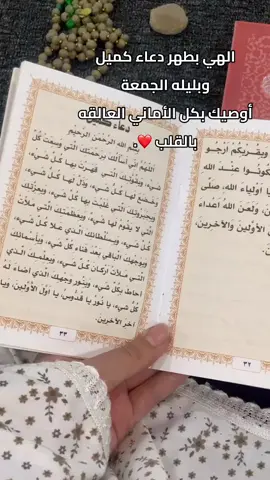 الهي بطهر دعاء كميل
وبليله الجمعة
أوصيك بكل الأماني العالقه
بالقلب ❤️.
دعاء
بسم الله الرحمن الرحيم
اللهم إني أسألك برحمتك التي وسعت كل
شيء، وبقوتك التي قهرت بها كل شيء،
وخضع لها كل شيء، وذل لها كل شيء،
وبجبروتك التي غلبت بها كل شيء، وبعزتك
التي لا يقوم لها شيء، وبعظمتك التي ملأت
كل شيء، وبسلطانك الذي علا كل شيء،
وبوجهك الباقي بعد فناء كل شيء، وبأسمائك
التي ملأت أركان كل شيء، وبعلمك الذي
أحاط بكل شيء، وبنور وجهك الذي أضاء له
كل شيء، يا نور يا قدوس، يا أول الأولين ويا
آخر الآخرين.
٣٣
ويقربكم
أرجو
عند الله
أولياء الله، صلى
ولعن الله أعداء
الأولين والآخرين.
٣٢